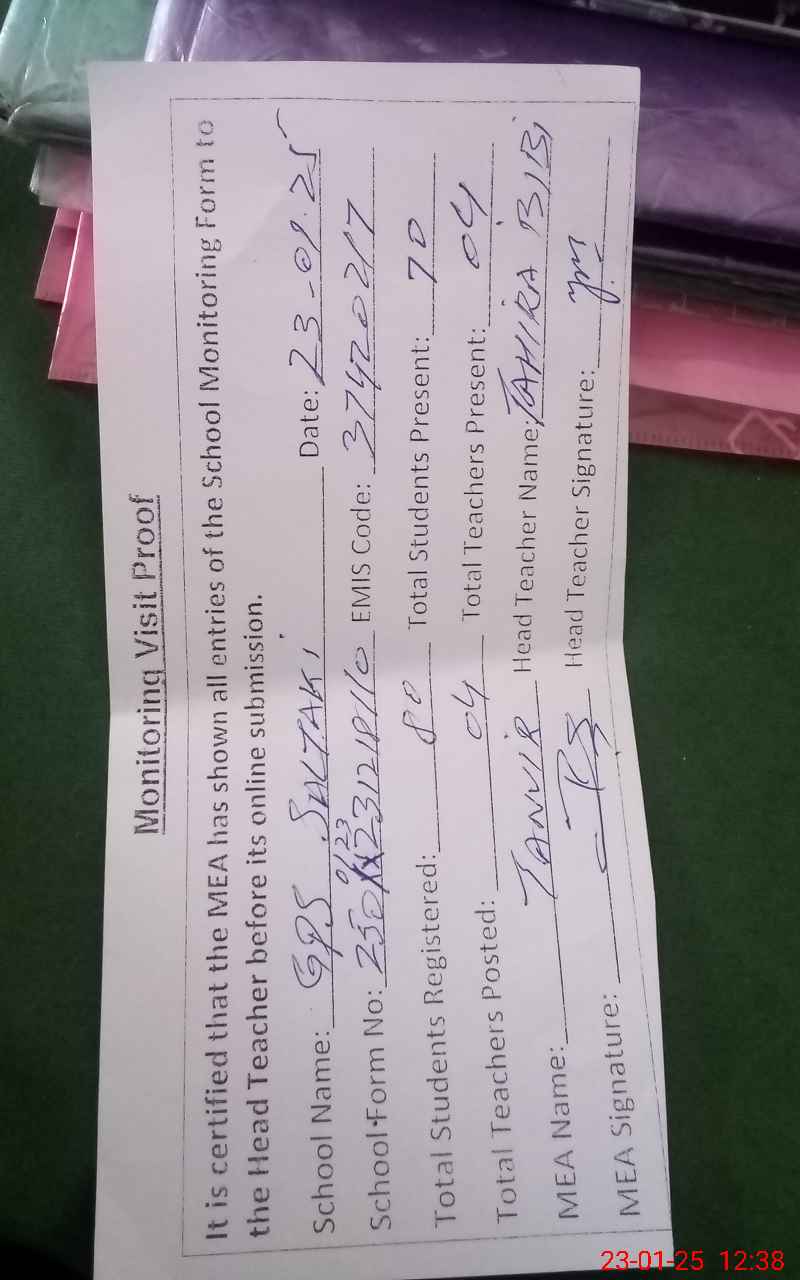 Monitoring Visit Proof
It is certified that the MEA has shown all entries of the School Monitoring Form to
the Head Teacher before its online submission.
School Name: GPS SULTAKI Date: 23-01-25
School Form No: EMIS Code: 37420217
Total Students Registered: 80 Total Students Present: 70
Total Teachers Posted: 04 Total Teachers Present: 04
MEA Name: TANVIR Head Teacher Name: TAHIRA BIBI
MEA Signature: Head Teacher Signature:
23-01-25 12:38